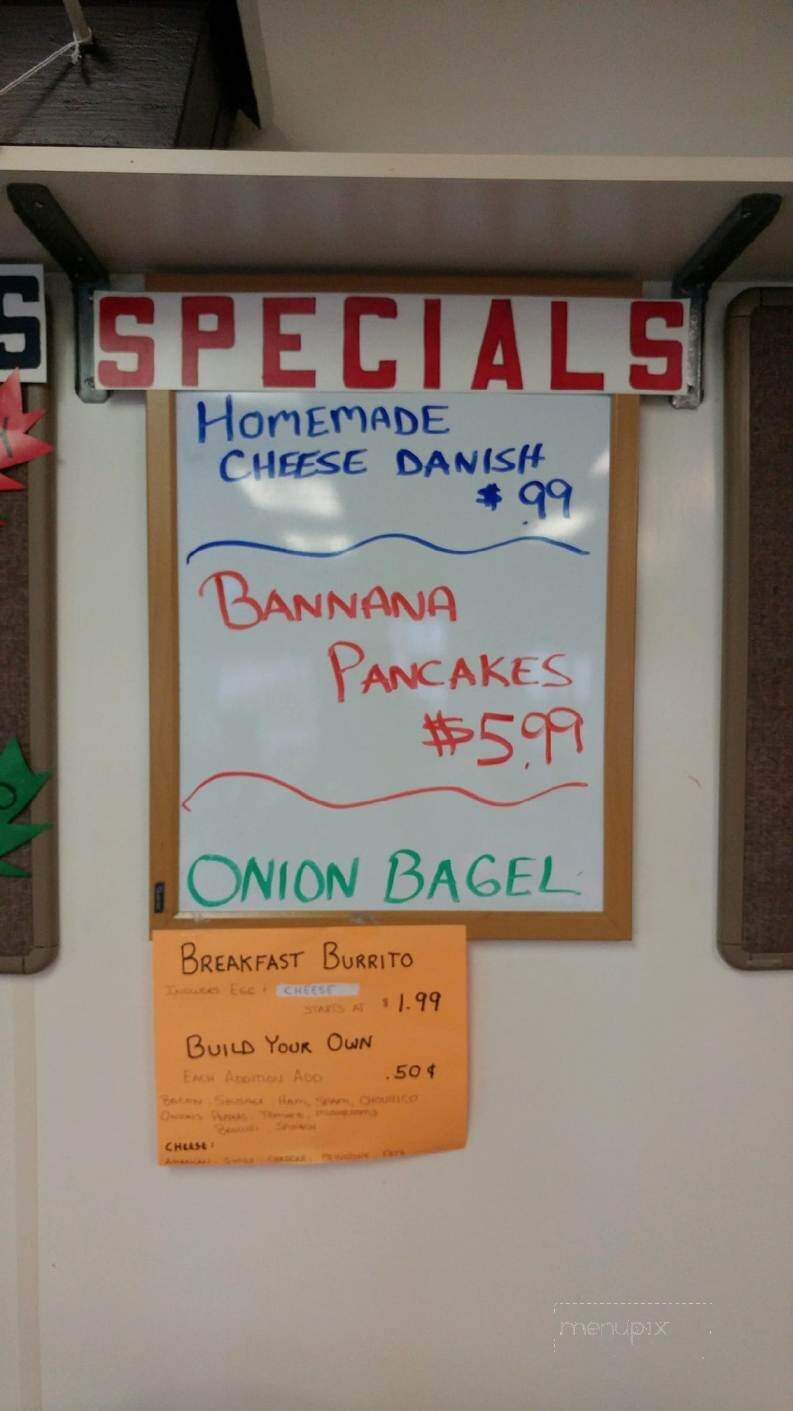 SPECIALS
HOMEMADE
CHEESE DANISH
$ .99
BANNANA
PANCAKES
$5.99
ONION BAGEL
BREAKFAST BURRITO
INCLUDES EGG & CHEESE
STARTS AT $1.99
BUILD YOUR OWN
EACH ADDITION ADD .50¢
BACON, SAUSAGE, HAM, SPAM, CHOURICO
ONIONS, PEPPERS, TOMATO, MUSHROOMS
SPINACH
CHEESE:
AMERICAN, SWISS, CHEDDAR, PROVOLONE, FETA
menupix